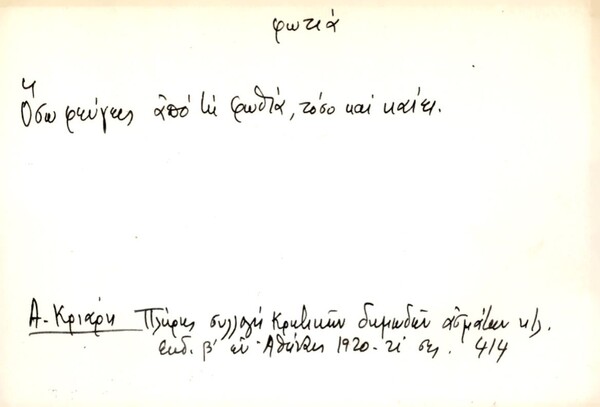 φωτιά
Ὅσω φεύγεις ἀπό τή φωθιά, τόσο καί καίει.
Α. Κριάρη Πλήρης συλλογή Κρητικῶν δημωδῶν ᾀσμάτων κ.λ.
ἐκδ. β' ἐν Ἀθήναις 1920 - σελ. 414